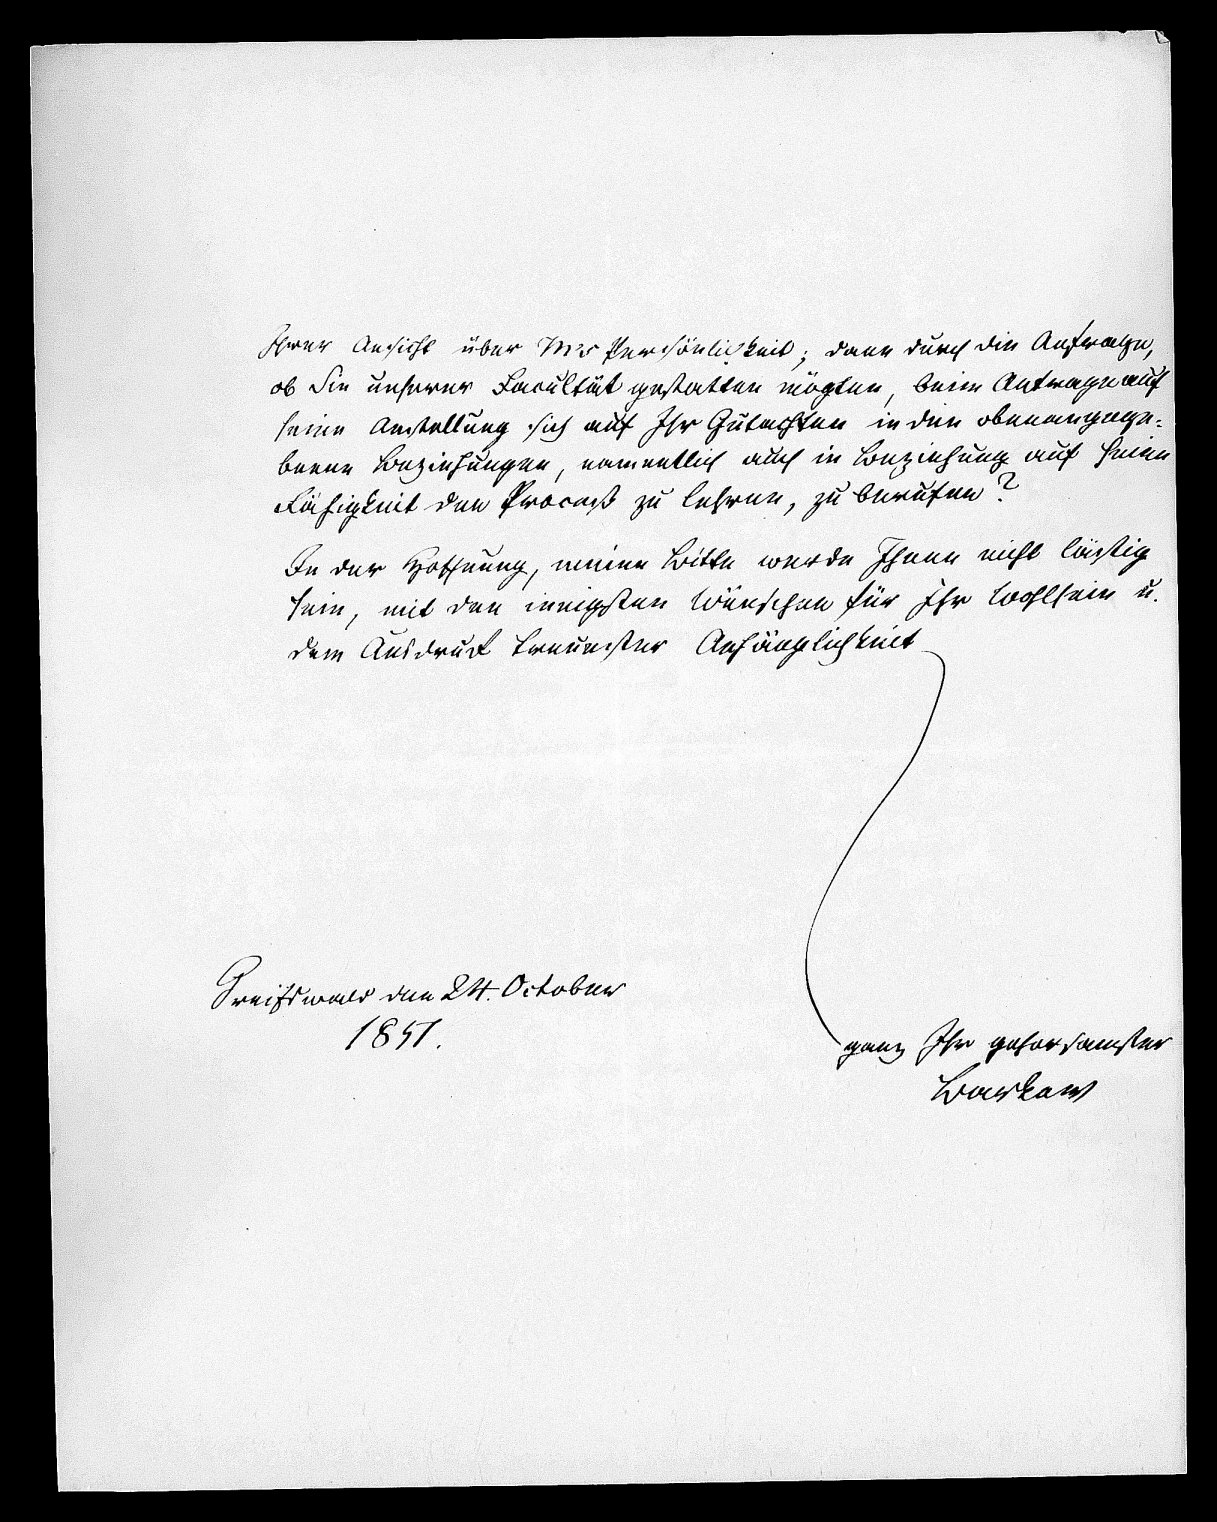 Ihrer Ansicht über M's Persönlichkeit; dann durch die Anfrage,
ob Sie unserer Facultät gestatten mögten, beim Antrage auf
seine Anstellung sich auf Ihr Gutachten in den obenangege-
benen Beziehungen, namentlich auch in Beziehung auf seine
Fähigkeit den Proceß zu lehren, zu berufen?
In der Hoffnung, meine Bitte werde Ihnen nicht lästig
sein, mit den innigsten Wünschen für Ihr Wohlsein u.
dem Ausdruck treuester Anhänglichkeit
Greifswald den 24. October
1851.
ganz Ihr gehorsamster
Barkow